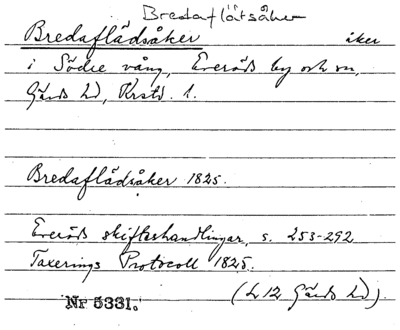 Bredaflätsåker
Bredaflädsåker åker
i Södre vång, Everöds by och sn,
Gärds hd, Krstd. l.
Bredaflädsåker 1825.
Everöds skifteshandlingar, s. 253-292
Taxerings Protocoll 1825.
(L 12 Gärds hd).
Nr 5331.